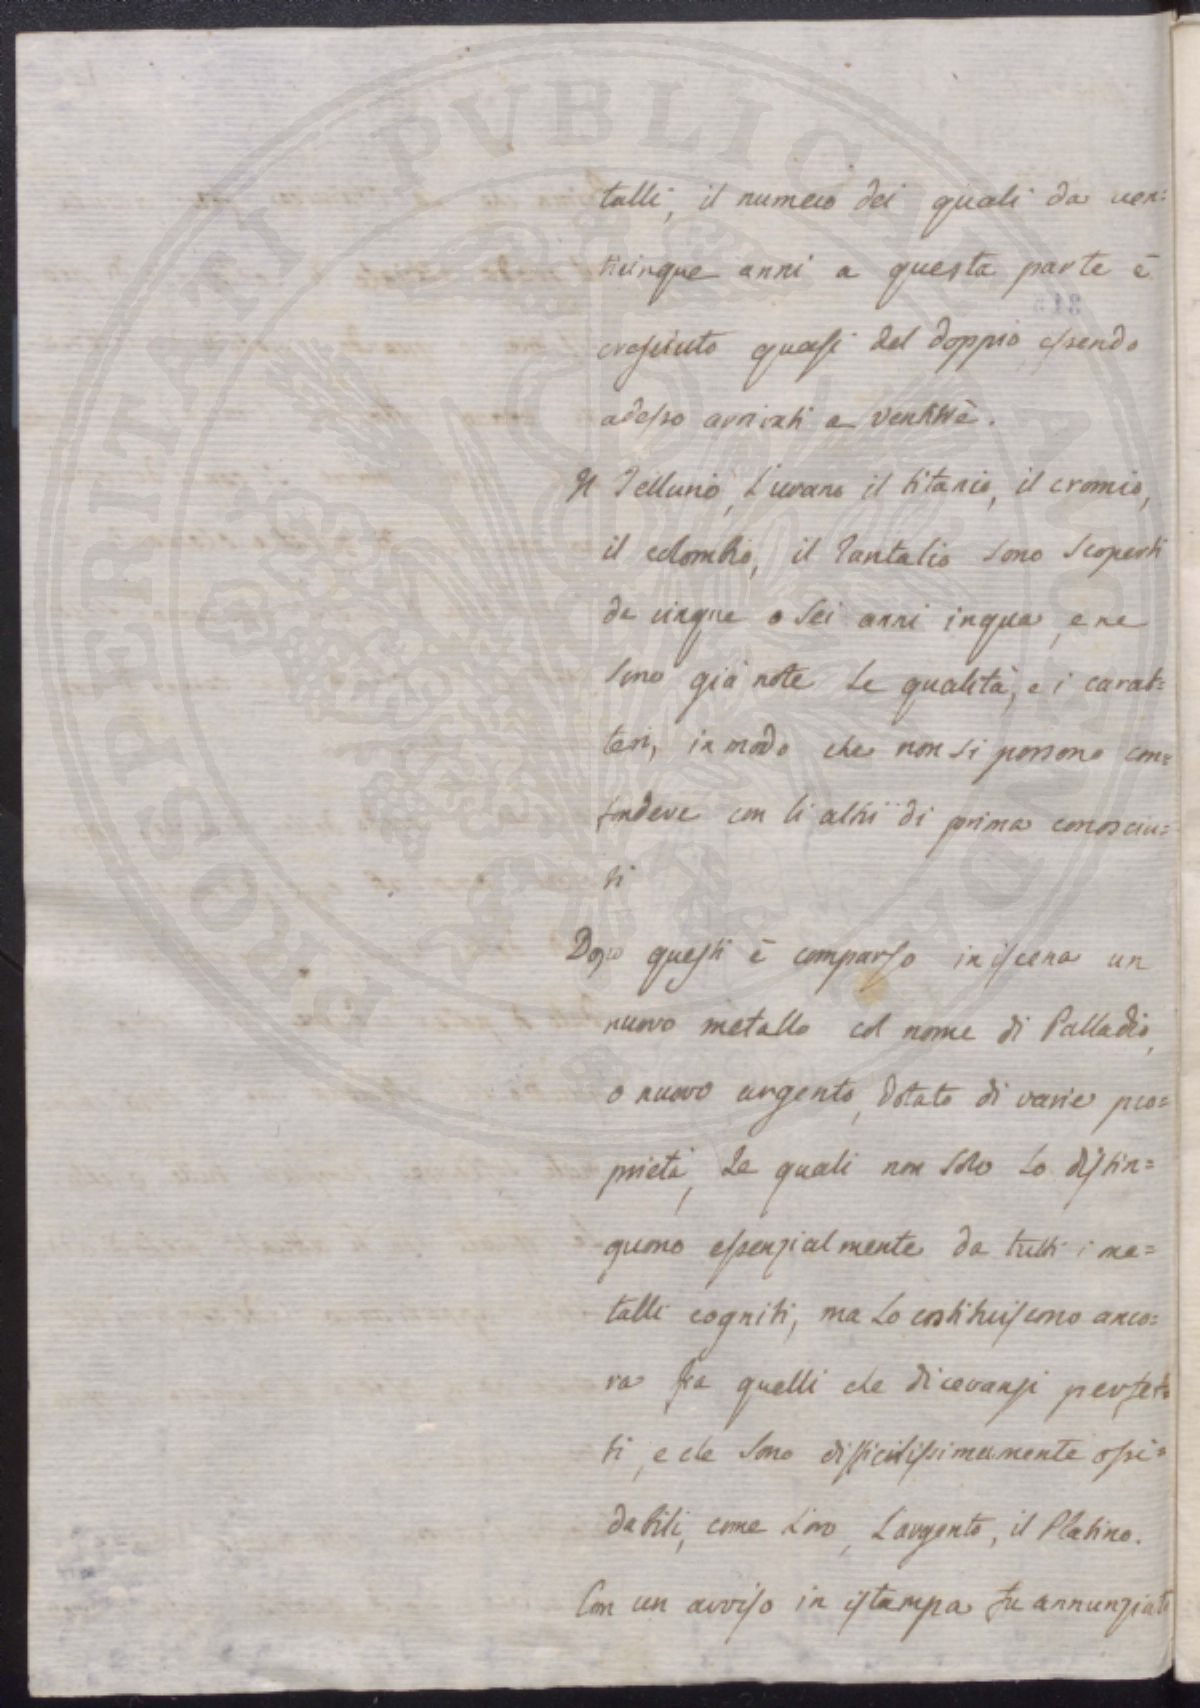 talli, il numero dei quali da ven=
ticinque anni a questa parte è
cresciuto quasi del doppio, essendo
adesso arrivati a ventitrè.
Il Tellurio, L'urano il titanio, il cromio,
il colombio, il Tantalio sono scoperti
da cinque o sei anni inqua, e ne
sono già note le qualità, e i carat=
teri, in modo che non si possono con=
fondere con li altri di prima conosciu=
ti
Dopo questi è comparso in iscena un
nuovo metallo col nome di Palladio,
o nuovo argento, dotato di varie pro=
prietà, Le quali non solo Lo distin=
guono essenzialmente da tutti i me=
talli cogniti, ma Lo costituiscono anco=
ra fra quelli che dicevansi perfet=
ti, e che sono difficilissimamente ossi=
dabili, come L'oro, L'argento, il Platino.
Con un avviso in istampa fu annunziato
PROSPERITATI PUBLICAE AUGENDAE